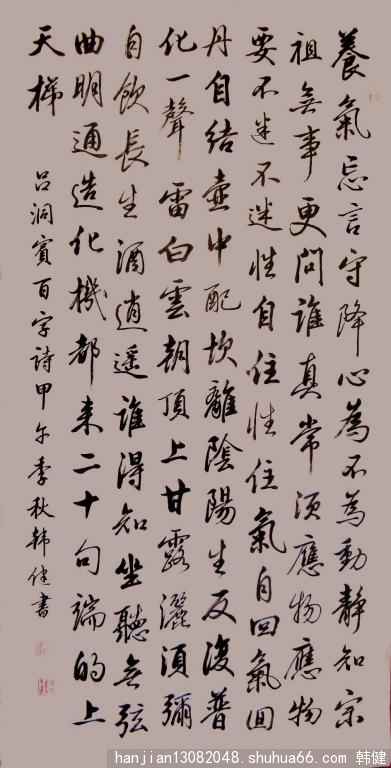 養氣忘言守降心為不為動靜知宗
祖無事更問誰真常須應物應物
要不迷不迷性自住性住氣自回氣回
丹自結壺中配坎離陰陽生反復普
化一聲雷白雲朝頂上甘露灑須彌
自飲長生酒逍遙誰得知坐聽無弦
曲明通造化機都來二十句端的上
天梯
呂洞賓百字詩甲午季秋韓健書
hanjian13082048.shuhua66.com 韩健